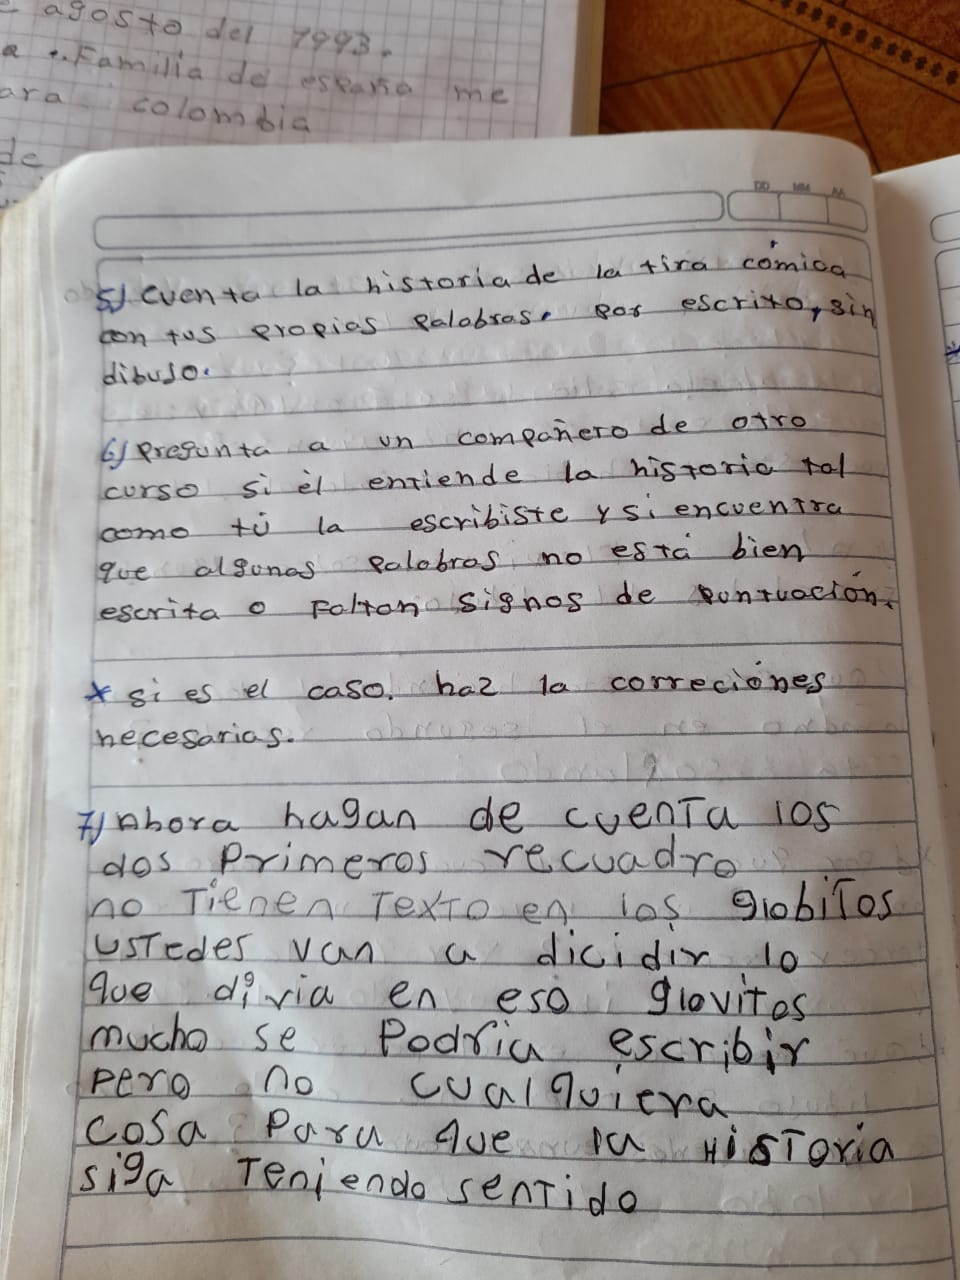 agosto del 1993.
a Familia de españa me
ara colombia
de
DD MM AA
5) cuenta la historia de la tira cómica
con tus propias palabras. por escrito, sin
dibujo.
6) Pregunta a un compañero de otro
curso si él entiende la historia tal
como tú la escribiste y si encuentra
que algunas palabras no está bien
escrita o faltan signos de puntuación.
* si es el caso. haz la correciónes
necesarias.
7) Ahora hagan de cuenta los
dos primeros recuadro
no Tienen Texto en los globitos
ustedes van a dicidir lo
que diria en eso glovitos
mucho se Podria escribir
pero no cualquiera
cosa para que la HISTORIA
siga Teniendo sentido